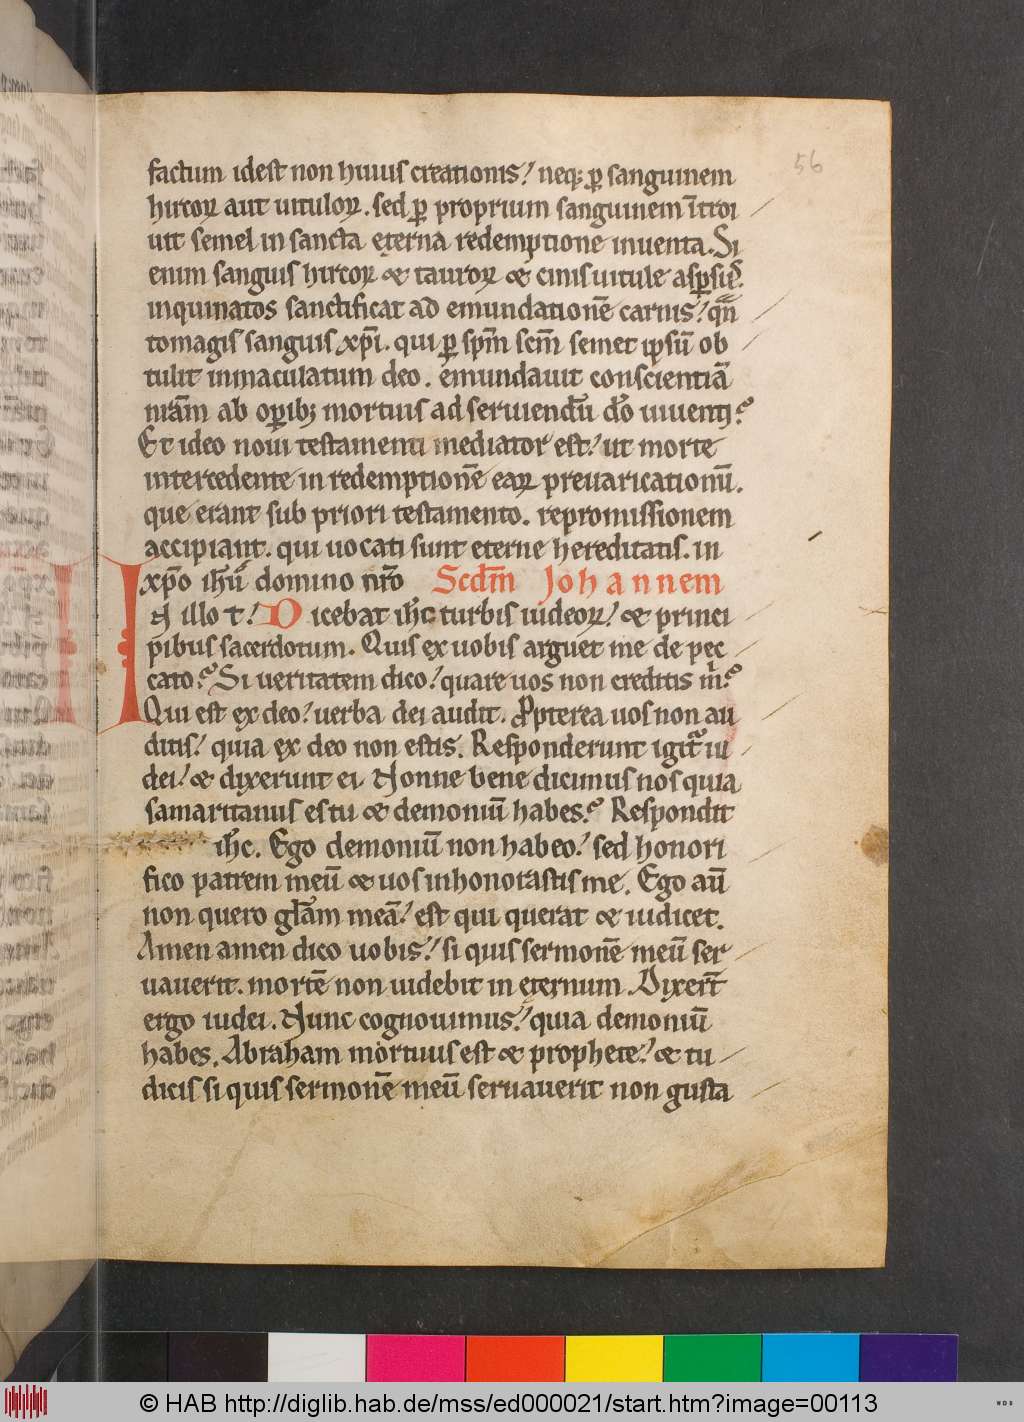 56
factum idest non huius creationis / neq; ꝑ sanguinem
hircoꝝ aut uituloꝝ . sed ꝑ proprium sanguinem ītroi
uit semel in sancta ęterna redemptione inuenta . Si
enim sanguis hircoꝝ & tauroꝝ & cinis uitule aspsus̄ .
inquinatos sanctificat ad emundationē carnis / qn̄
tomagis sanguis xp̄i . qui ꝑ spm̄ scm̄ semet ipsū ob
tulit inmaculatum deo . emundauit conscientiā
nrām ab opib; mortuis ad seruiendū dō uiuenti ?
Et ideo noui testamenti mediator est / ut morte
intercedente in redemptionē eaꝝ preuaricationū .
que erant sub priori testamento . repromissionem
accipiant . qui uocati sunt eterne hereditatis . in
xp̄o ihū domino nrō Scdm̄ Johannem
IN illo t / Dicebat ihc̄ turbis iudeoꝝ / & princi
pibus sacerdotum . Quis ex uobis arguet me de pec
cato ? Si ueritatem dico / quare uos non creditis m̄ ?
Qui est ex deo / uerba dei audit . Ppterea uos non au
ditis / quia ex deo non estis . Responderunt igit̄ iu
dei / & dixerunt ei . Nonne bene dicimus nos quia
samaritanus es tu & demoniū habes ? Respondit
ihc̄ . Ego demoniū non habeo / sed honori
fico patrem meū & uos inhonorastis me . Ego aū
non quero glām meā / est qui querat & iudicet .
Amen amen dico uobis / si quis sermonē meū ser
uauerit . mortē non uidebit in ęternum . Dixert̄
ergo iudei . Nunc cognouimus / quia demoniū
habes . Abraham mortuus est & prophete / & tu
dicis si quis sermonē meū seruauerit non gusta
© HAB http://diglib.hab.de/mss/ed000021/start.htm?image=00113